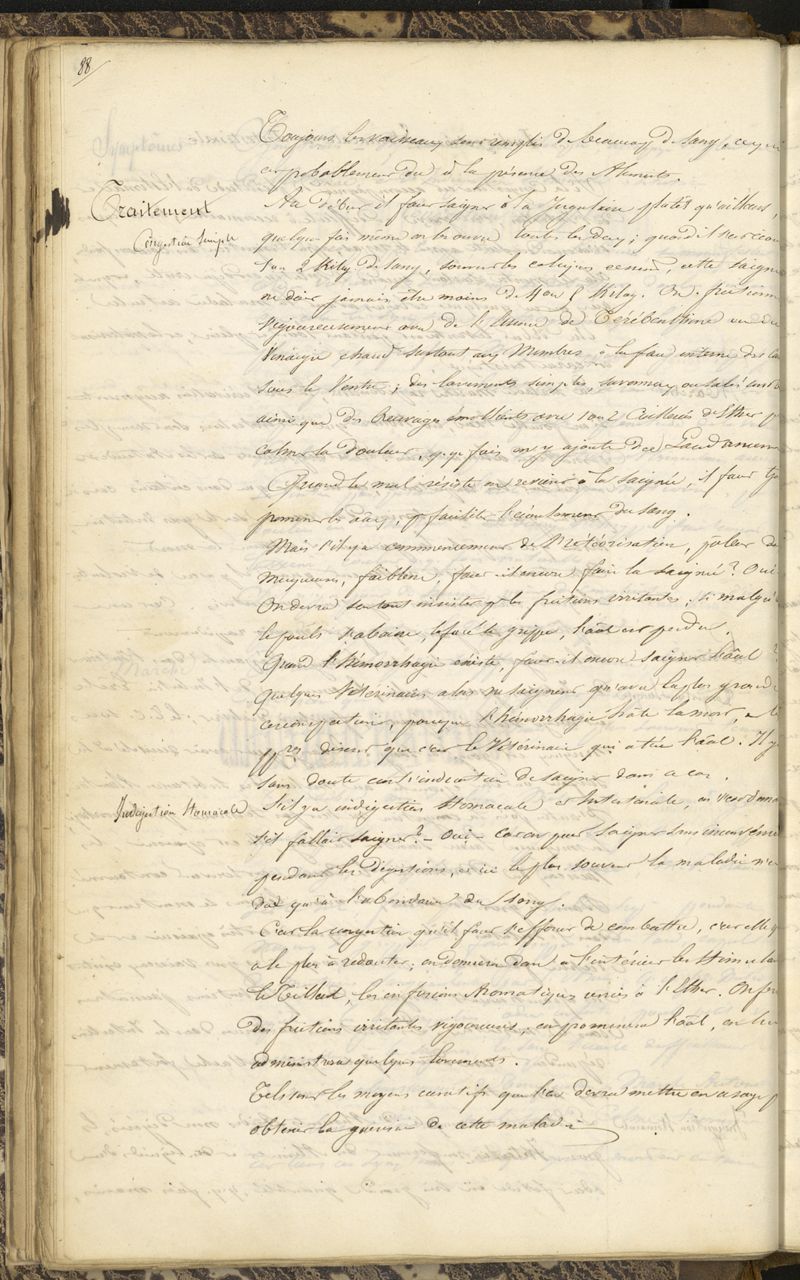 88
Toujours les vaisseaux sont remplis de beaucoup de sang, ce qui
est probablement dû à la présence des Aliments.
Traitement
Au début il faut saigner à la Jugulaire plutôt qu'ailleurs,
Congestion Simple
quelques fois même on les ouvre toutes les deux; quand il s'est écou
1 ou 2 Kilog de sang, souvent les coliques cessent, cette saigné
ne doit jamais être moins de 4 ou 5 Kilog. On frictionn
vigoureusement avec de l'Essence de Térébenthine ou du
Vinaigre chaud surtout aux Membres à la face interne des
sous le Ventre; des lavements simples, savonneux ou salés
ainsi que des Breuvages émollients avec 1 ou 2 Cuillerées d'Ether p
calmer la douleur, qq. fois on y ajoute du Laudanum
Quand le mal résiste on revient à la saignée, il faut
promener les pr faciliter l'écoulement du sang.
Mais s'il y a commencement de Météorisation, pâleur de
Muqueuses, faiblesse, faut-il encore faire la saignée? Oui
On devra surtout insister sur les frictions irritantes; si malgré
le pouls s'abaisse, la face se grippe, l'aâl est perdu.
Quand l'Hémorrhagie existe, faut-il encore saigner l'aâl?
Quelques Vétérinaires alors ne saignent qu'avec la plus grande
circonspection, parceque l'hémorrhagie hâte la mort, et
disent que c'est le Vétérinaire qui a tué l'aâl. Il y
sans doute contr'indication de saigner dans ce cas.
Indigestion Stomacale
S'il y a indigestion Stomacale et Intestinale,
s'il fallait saigner? – Oui – Car on peut saigner sans inconvénien
pendant les digestions, et ici le plus souvent la maladie n'e
due qu'à l'abondance du Sang.
C'est la congestion qu'il faut s'efforcer de combattre, c'est elle q
a le plus à redouter; on donnera donc à l'intérieur les Stimulan
le Tilleul, les infusions Aromatiques unies à l'Ether. On fer
des frictions irritantes vigoureuses, on promènera l'aâl, on lui
administrera quelques lavements.
Tels sont les moyens curatifs que l'on devra mettre en usage p
obtenir la guérison de cette maladie